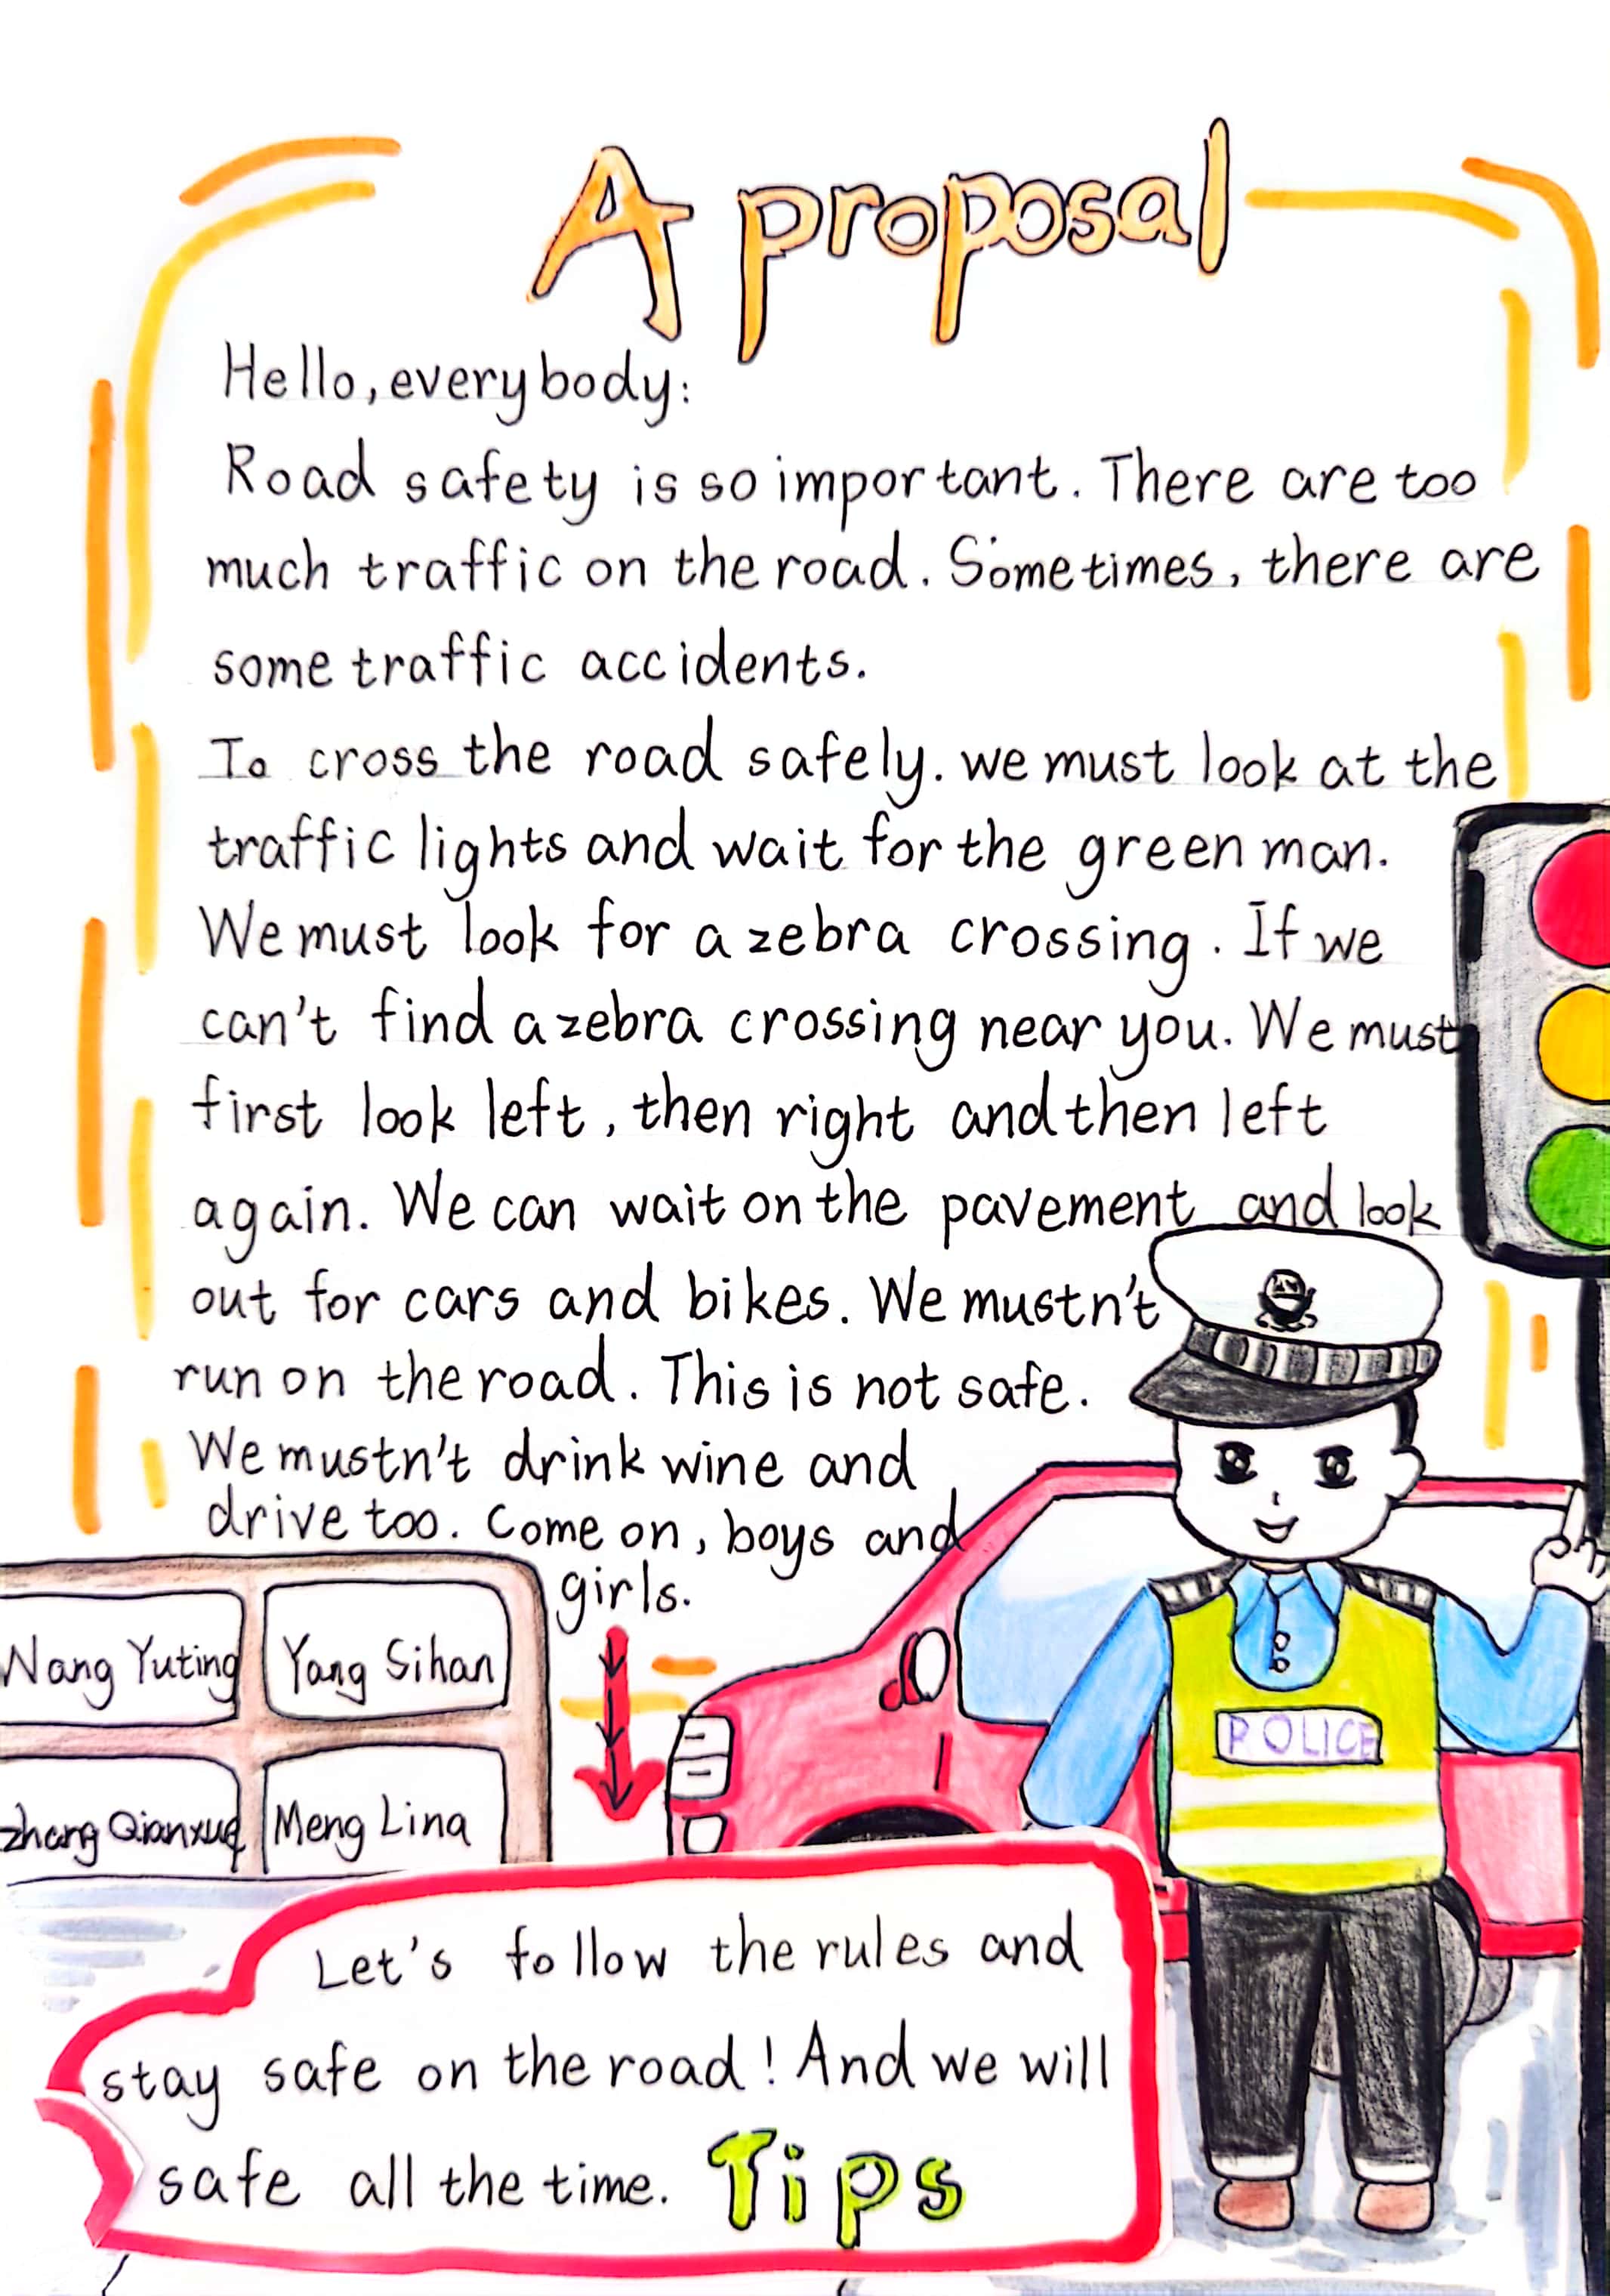 A proposal
Hello, everybody:
Road safety is so important. There are too
much traffic on the road. Sometimes, there are
some traffic accidents.
To cross the road safely. we must look at the
traffic lights and wait for the green man.
We must look for a zebra crossing. If we
can't find a zebra crossing near you. We must
first look left, then right and then left
again. We can wait on the pavement and look
out for cars and bikes. We mustn't
run on the road. This is not safe.
We mustn't drink wine and
drive too. Come on, boys and
girls.
Wang Yuting
Yang Sihan
Zhang Qianxue
Meng Lina
POLICE
Let's follow the rules and
stay safe on the road! And we will
safe all the time.
Tips